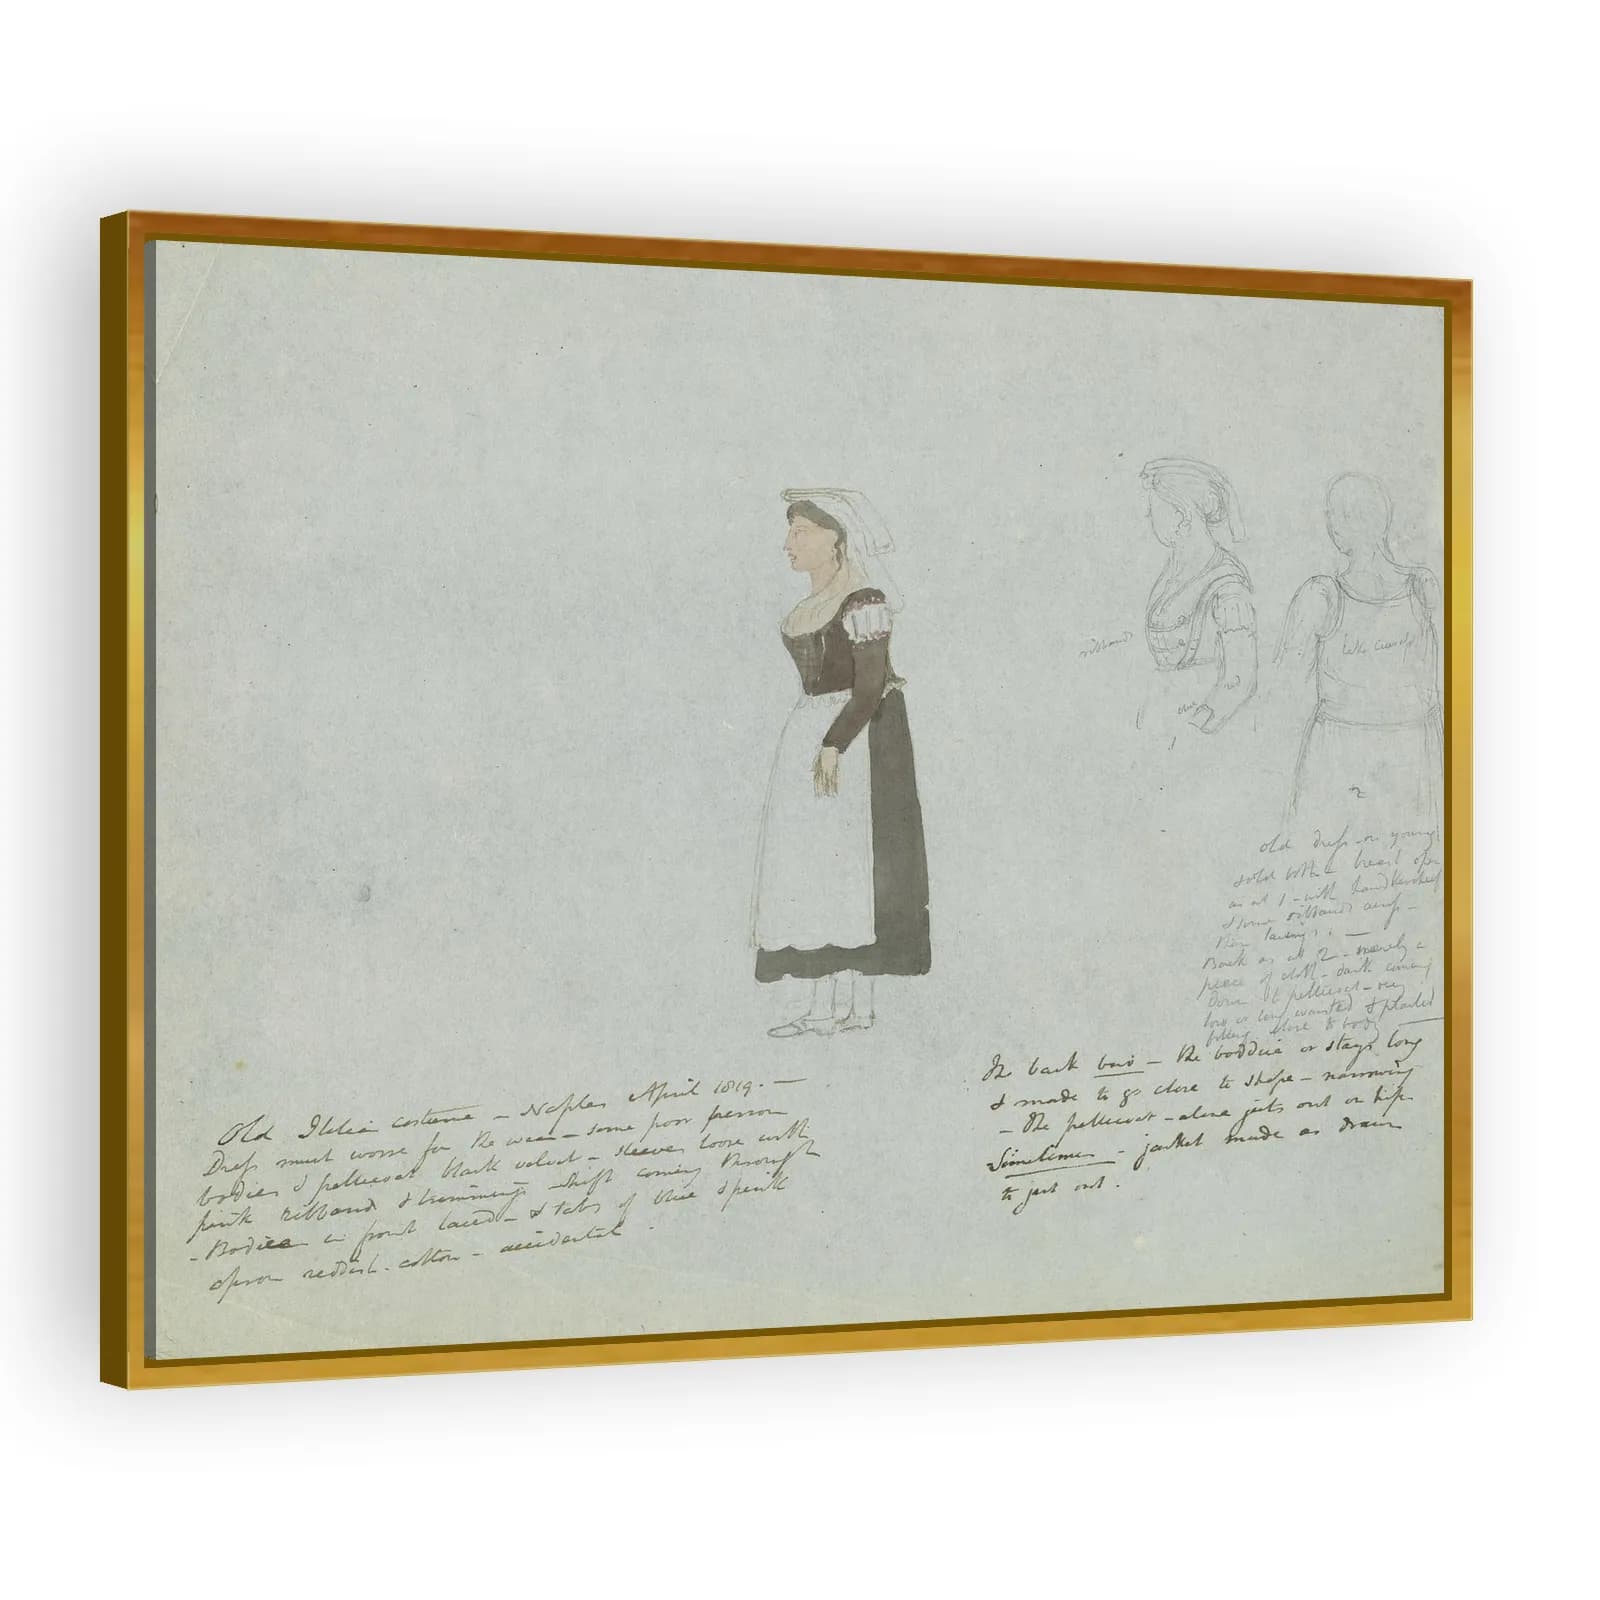 Old Italian costume - Naples April 1819. -
Dress much worse for the wear - some poor person
bodies & petticoat black velvet - sleeves loose with
pink ribband & trimmings shift coming through
- Bodice in front laced - & tabs of blue & pink
apron reddish. cotton - accidental.
ribbands
red
blue
2
old dress - or young
& old both - breast open
as at 1 - with handkerchief
& some ribbands across -
the lacings. -
Back as at 2 - merely a
piece of cloth - dark coming
down to petticoat - very
close to body
The back two - the boddice or stays long
& made to go close to shape - narrowing
- The petticoat - alone juts out on hips
Sometimes - jacket made as drawn
to jut out.